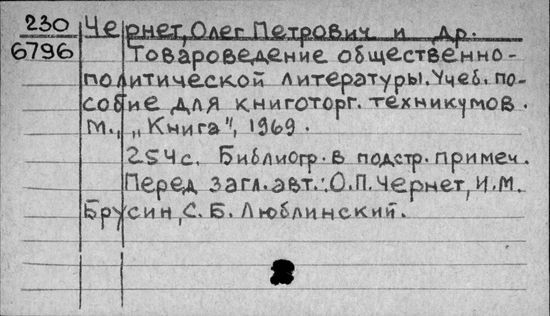 230 Чернет, Олег Петрович и др.
6796 Товароведение общественно-
политической литературы. Учеб. по-
собие для книготорг. техникумов.
М., „Книга", 1969.
254с. Библиогр. в подстр. примеч.
Перед загл. авт.: О.П. Чернет, И.М.
Брусин, С.Б. Люблинский.